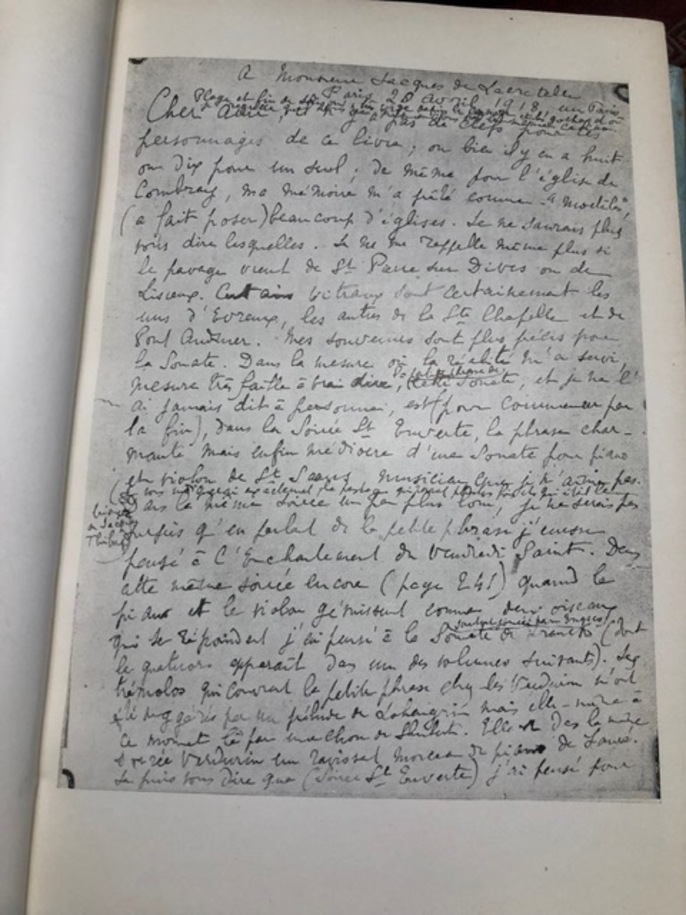 A Monsieur Jacques de Lacretelle
Paris 20 Avril 1918,
Cher ami il n'y a pas de clefs pour les
personnages de ce livre ; ou bien il y en a huit
ou dix pour un seul ; de même pour l'église de
Combray, ma mémoire m'a prêté comme "modèles",
(a fait poser) beaucoup d'églises. Je ne saurais plus
vous dire lesquelles. Je ne me rappelle même plus si
le pavage vient de St Pierre sur Dives ou de
Lisieux. Certains vitraux sont certainement les
uns d'Evreux, les autres de la Ste Chapelle et de
Pont Audemer. Mes souvenirs sont plus précis pour
la Sonate. Dans la mesure où la réalité m'a servi,
mesure très faible à vrai dire, la petite phrase de
cette Sonate, et je ne l'
ai jamais dit à personne, est (pour commencer par
la fin), dans la Soirée St Euverte, la phrase char-
mante mais enfin médiocre d'une Sonate pour piano
et violon de St Saens, musicien que je n'aime pas.
(Je vous indiquerai exactement le passage qui vient plusieurs fois et qui était le
triomphe
de Jacques
Thibaud)
Dans la même soirée un peu plus loin, je ne serais pas
surpris qu'en parlant de la petite phrase j'eusse
pensé à l'Enchantement du Vendredi Saint. Dans
cette même soirée encore (page 241) quand le
piano et le violon gémissent comme deux oiseaux
qui se répondent j'ai pensé à la Sonate de Franck
surtout jouée par Enesco
(dont
le quatuor apparaît dans un des volumes suivants). Les
trémolos qui couvrent la petite phrase chez les Verdurin m'ont
été suggérés par un prélude de Lohengrin mais elle-même à
ce moment là par une chose de Schubert. Elle est dans la même
soirée Verdurin un ravissant morceau de piano de Fauré.
Je puis vous dire que (Soirée St Euverte) j'ai pensé pour